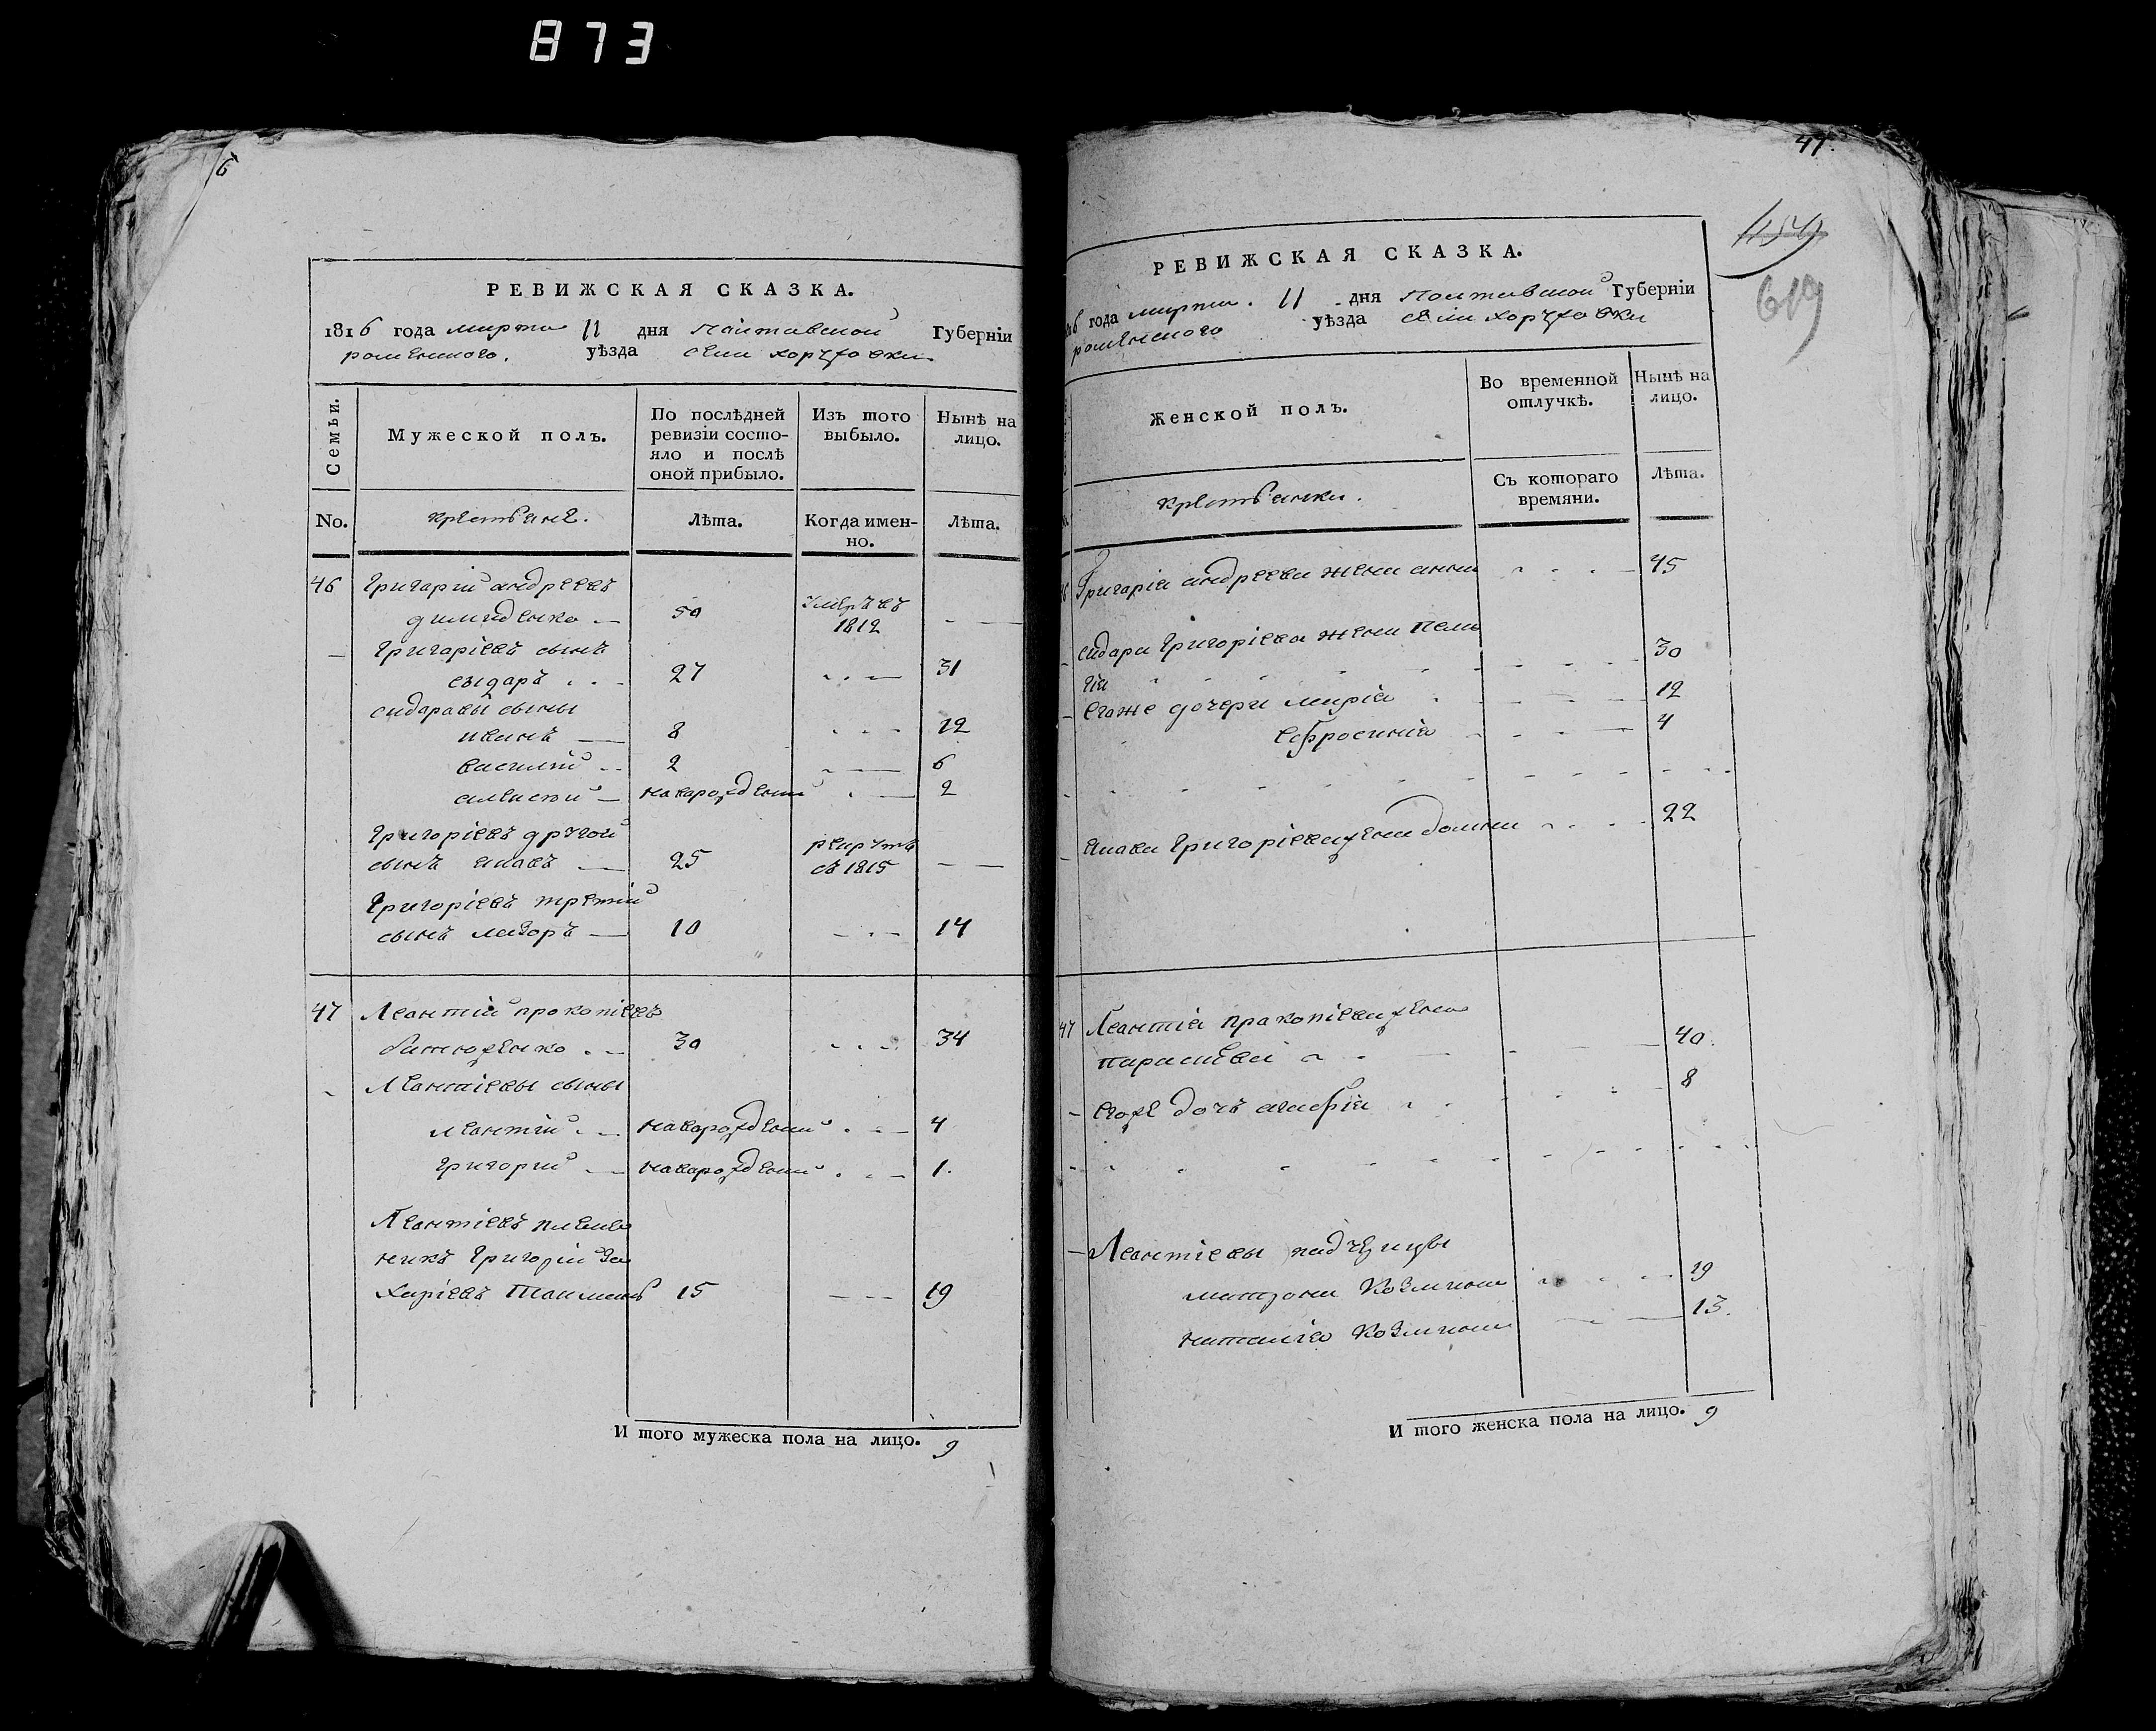 873
РЕВИЖСКАЯ СКАЗКА.
1816 года марта 11 дня Полтавской Губерніи
роменского. уѣзда села
Семьи.
Мужеской полъ.
По послѣдней ревизіи состо-
яло и послѣ
оной прибыло.
Изъ того
выбыло.
Нынѣ на
лицо.
No.
крестьяне.
Лѣта.
Когда имен-
но.
Лѣта.
46 Григарій андреевъ
50 умеръ въ
1812
Григаріевъ сынъ
сидаръ 27 31
сидаравы сыны
иванъ 8 12
василий 2 6
алексей новарожденый 2
Григоріевъ другой
сынъ исакъ 25 рекрутъ
въ 1815
Григоріевъ третій
сынъ лазоръ 10 14
47 Леонтій прокопіевъ
30 34
Леонтіевы сыны
леонтій новарожденый 4
григорий новарожденый 1.
Леонтіевъ племе
никъ григорій за
харіевъ 15 19
И того мужеска пола на лицо. 9
47.
619
РЕВИЖСКАЯ СКАЗКА.
1816 года марта. 11 дня Полтавской Губерніи
роменского уѣзда села
Женской полъ.
Во временной
отлучкѣ.
Нынѣ на
лицо.
крестьянки.
Съ котораго
времяни.
Лѣта.
Григарія андреева жена анна 45
сидара Григоріева жена Пела
гія 30
егоже дочери марія 12
ефросинія 4
исака Григоріева жена домна 22
47 Леонтія пракопіева жена
параскева 40.
егоже дочь агафія 8
Леонтіевы падчерицы
матрона Козмина 19
наталія Козмина 13.
И того женска пола на лицо. 9